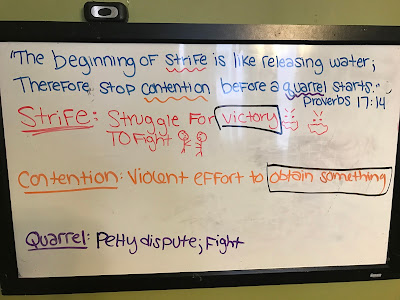 "The beginning of strife is like releasing water;
Therefore stop contention before a quarrel starts."
Proverbs 17:14
Strife: Struggle for victory
To fight
Contention: Violent effort to obtain something
Quarrel: Petty dispute; fight